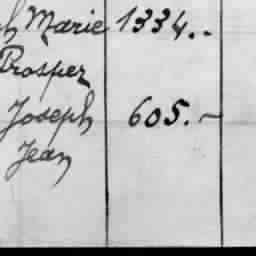 h Marie 1334..
Prosper
Joseph 605.~
Jean